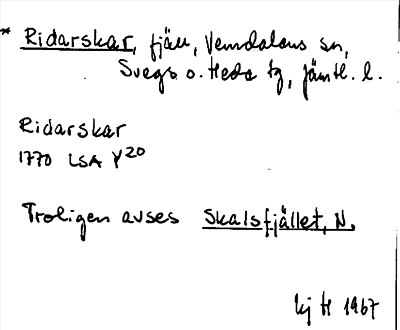 * Ridarskar, fjäll, Vemdalens sn,
Svegs o. Heda tg, Jämtl. l.
Ridarskar
1770 LSA Y20
Troligen avses Skalsfjället, N.
kj H 1967